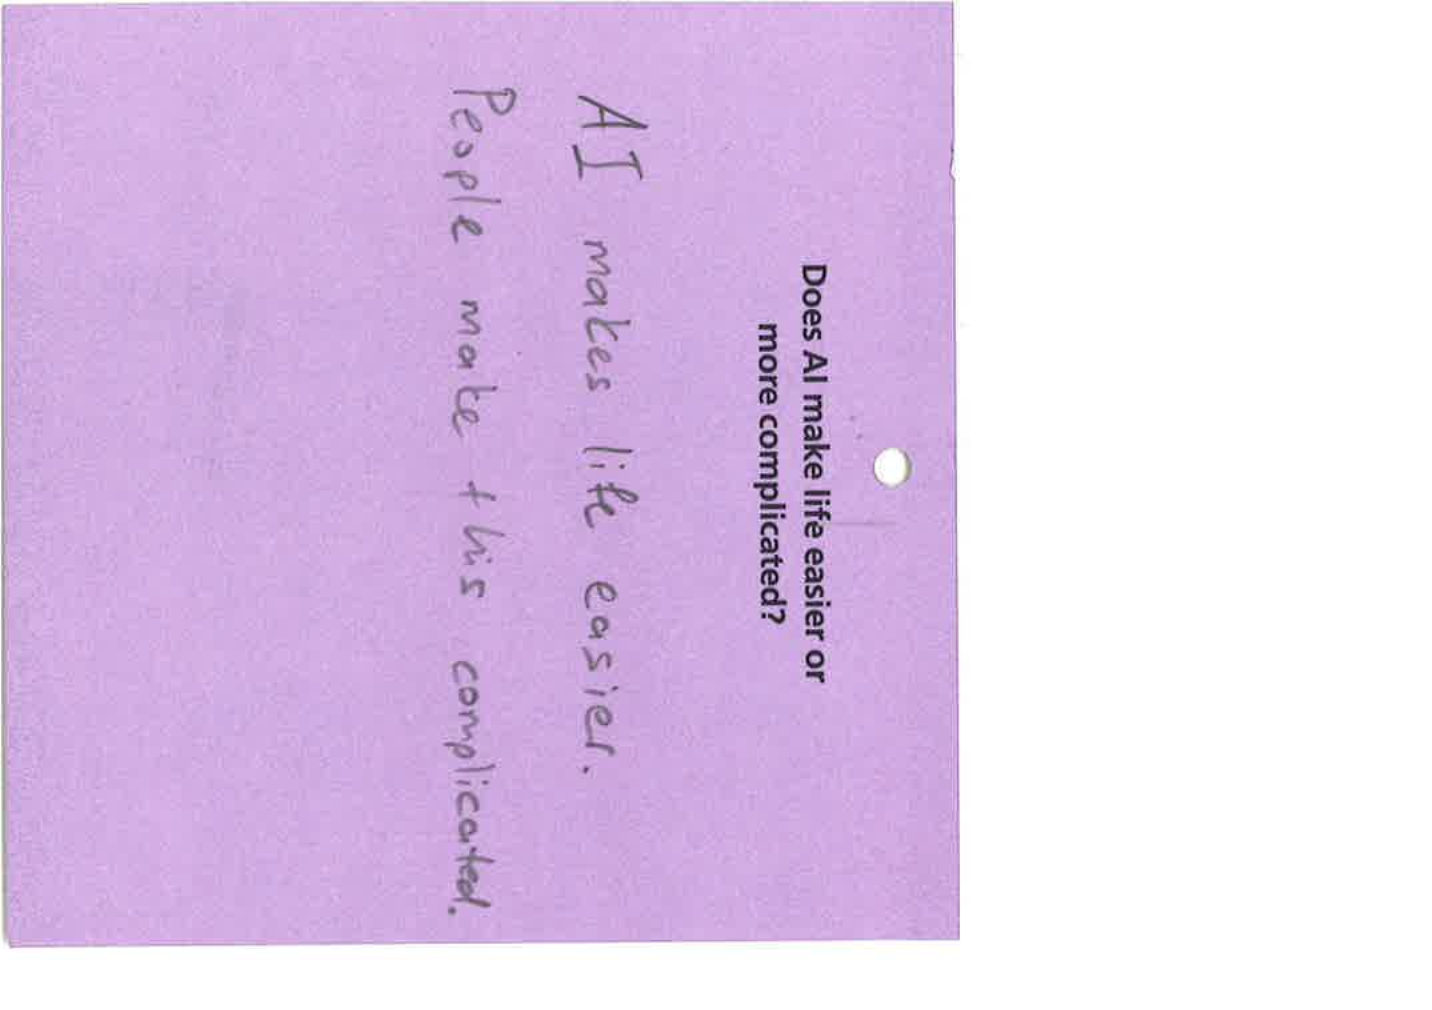 Does AI make life easier or
more complicated?
AI makes life easier.
People make this complicated.